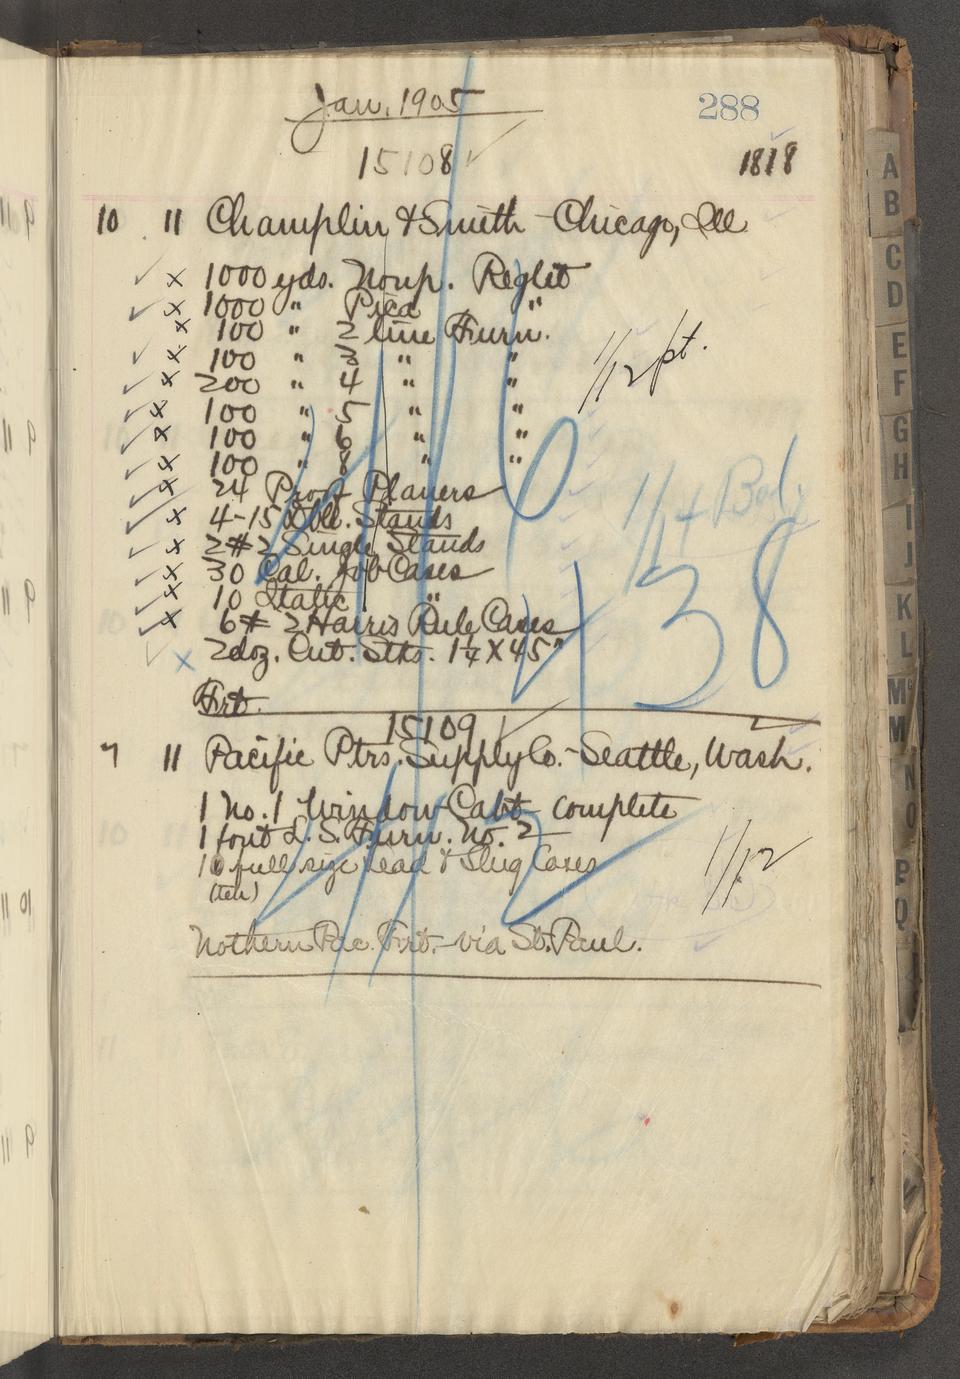 Jan. 1905
288
15108
1818
10 11 Champlin & Smith - Chicago, Ill
x 1000 yds. Nonp. Reglet
x 1000 " Pica "
x 100 " 2 line Furn.
x 100 " 3 " "
x 200 " 4 " "
x 100 " 5 " "
x 100 " 6 " "
x 100 " 8 " "
1/12 pt.
x 24 Proof Planers
x 4-15 Dbl. Stands
x 2 # 2 Single Stands
x 30 Cal. Job Cases
x 10 Italic "
x 6 # 2 Harris Rule Cases
x 2 doz. Cut. Stks. 1¼ X 45"
1/14 Bal.
138
Frt.
15109
7 11 Pacific Ptrs. Supply Co. - Seattle, Wash.
1 No. 1 Window Cabt complete
1 font L. S. Furn. No. 2
10 full size Lead & Slug Cases
(ten)
1/12
Nothern Pac. Frt. - via St. Paul.
A
B
C
D
E
F
G
H
I
J
K
L
M
M
N
O
P
Q